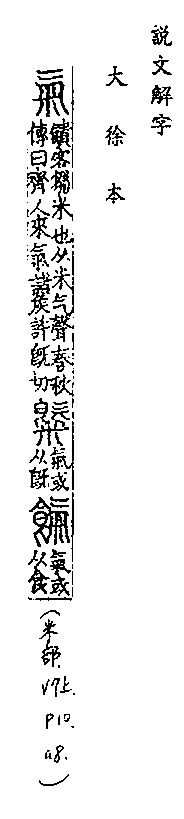 說文解字
大徐本
氣 饋客芻米也从米气聲春秋
傳曰齊人來氣諸矦許旣切
䊠 氣或
从旣
餼 氣或
从食
(米部. V7上. P10. a8.)